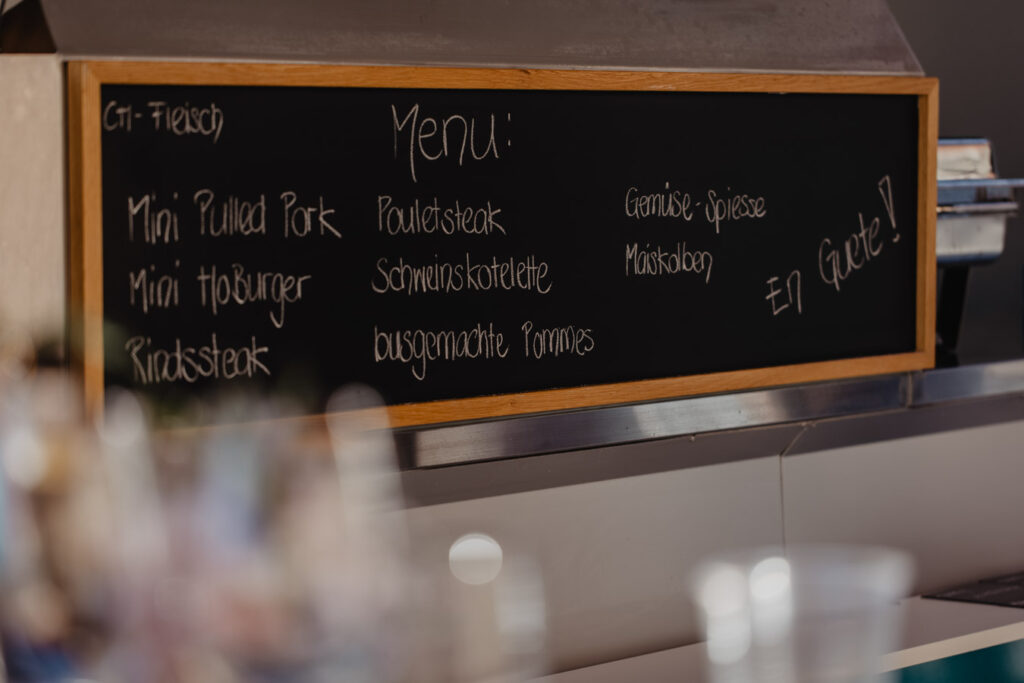 CH-Fleisch
Menu:
Mini Pulled Pork
Mini HoBurger
Rindssteak
Pouletsteak
Schweinskotelette
busgemachte Pommes
Gemüse-Spiesse
Maiskolben
En Guete!